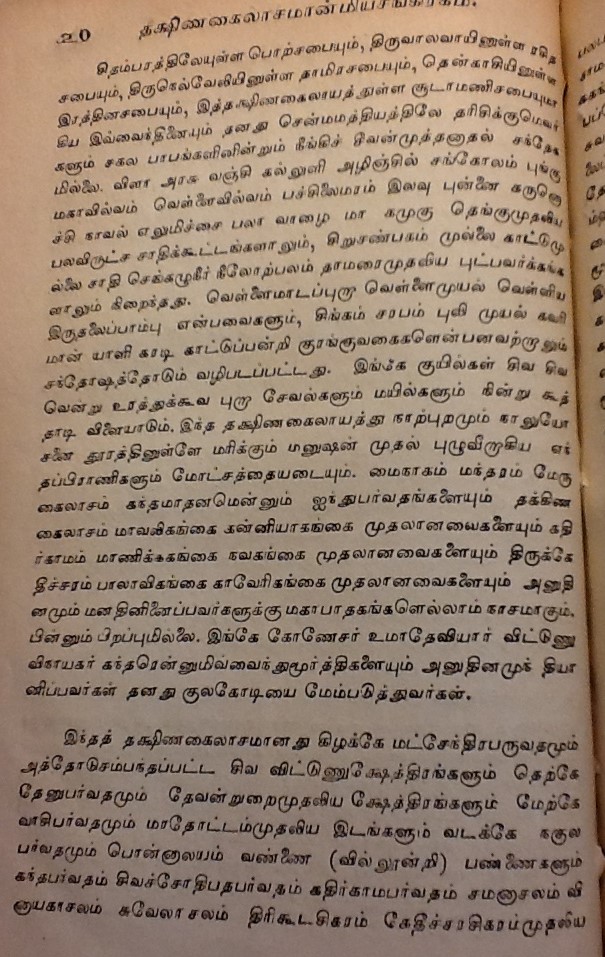 ௨0 தக்ஷிணகைலாசமான்மியசங்கிரகம்.
சிதம்பரத்திலேயுள்ள பொற்சபையும், திருவாலவாயினுள்ள ரசித
சபையும், திருநெல்வேலியினுள்ள தாமிரசபையும், தென்காசியினுள்ள
இரத்தினசபையும், இத்தக்ஷிணகைலாயத்துள்ள சூடாமணிசபையுமா
கிய இவ்வைந்தினையும் தனது சென்மமத்தியத்திலே தரிசிக்குமெவர்
களும் சகல பாபங்களினின்றும் நீங்கிச் சிவன்முத்தனாதல் சந்தேக
மில்லை. விளா அரசு வஞ்சி கல்லுளி அழிஞ்சில் சங்கோலம் புங்கு
மகாவில்வம் வெள்ளைவில்வம் பச்சிலைமரம் இலவு புன்னை கருநொ
ச்சி நாவல் எலுமிச்சை பலா வாழை மா கமுகு தெங்குமுதலிய
பலவிருட்ச சாதிக்கூட்டங்களாலும், சிறுசண்பகம் முல்லை காட்டுமு
ல்லை சாதி செங்கழுநீர் நீலோற்பலம் தாமரைமுதலிய புட்பவர்க்கங்க
ளாலும் நிறைந்தது. வெள்ளைமாடப்புறா வெள்ளைமுயல் வெள்ளிய
இருதலைப்பாம்பு என்பவைகளும், சிங்கம் சரபம் புலி முயல் கவி
மான் யாளி கரடி காட்டுப்பன்றி குரங்குவகைகளென்பனவற்றாலும்
சந்தோஷத்தோடும் வழிபடப்பட்டது. இங்கே குயில்கள் சிவ சிவ
வென்று உரத்துக்கூவ புறா சேவல்களும் மயில்களும் நின்று கூத்
தாடி விளையாடும். இந்த தக்ஷிணகைலாயத்து நாற்புறமும் நாலுயோ
சனை தூரத்தினுள்ளே மரிக்கும் மனுஷன் முதல் புழுவீறாகிய எந்
தப்பிராணிகளும் மோட்சத்தையடையும். மைநாகம் மந்தரம் மேரு
கைலாசம் கந்தமாதனமென்னும் ஐந்துபர்வதங்களையும் தக்கிண
கைலாசம் மாவலிகங்கை கன்னியாகங்கை முதலானவைகளையும் கதி
ர்காமம் மாணிக்ககங்கை நவகங்கை முதலானவைகளையும் திருக்கே
தீச்சரம் பாலாவிகங்கை காவேரிகங்கை முதலானவைகளையும் அனுதி
னமும் மனதினினைப்பவர்களுக்கு மகாபாதகங்களெல்லாம் நாசமாகும்.
பின்னும் பிறப்புமில்லை. இங்கே கோணேசர் உமாதேவியார் விட்டுணு
விநாயகர் கந்தரென்னுமிவ்வைந்துமூர்த்திகளையும் அனுதினமுந் தியா
னிப்பவர்கள் தனது குலகோடியை மேம்படுத்துவர்கள்.
இந்தத் தக்ஷிணகைலாசமானது கிழக்கே மட்சேந்திரபருவதமும்
அத்தோடுசம்பந்தப்பட்ட சிவ விட்டுணுக்ஷேத்திரங்களும் தெற்கே
தேனுபர்வதமும் தேவன்றுறைமுதலிய க்ஷேத்திரங்களும் மேற்கே
வாசிபர்வதமும் மாதோட்டம்முதலிய இடங்களும் வடக்கே நகுல
பர்வதமும் பொன்னாலயம் வண்ணை (வில்லூன்றி) பண்ணைகளும்
கந்தபர்வதம் சிவச்சோதிபதபர்வதம் கதிர்காமபர்வதம் சமனாசலம் வி
னாயகாசலம் சுவேலாசலம் திரிகூடசிகரம் கேதீச்சரசிகரம்முதலிய